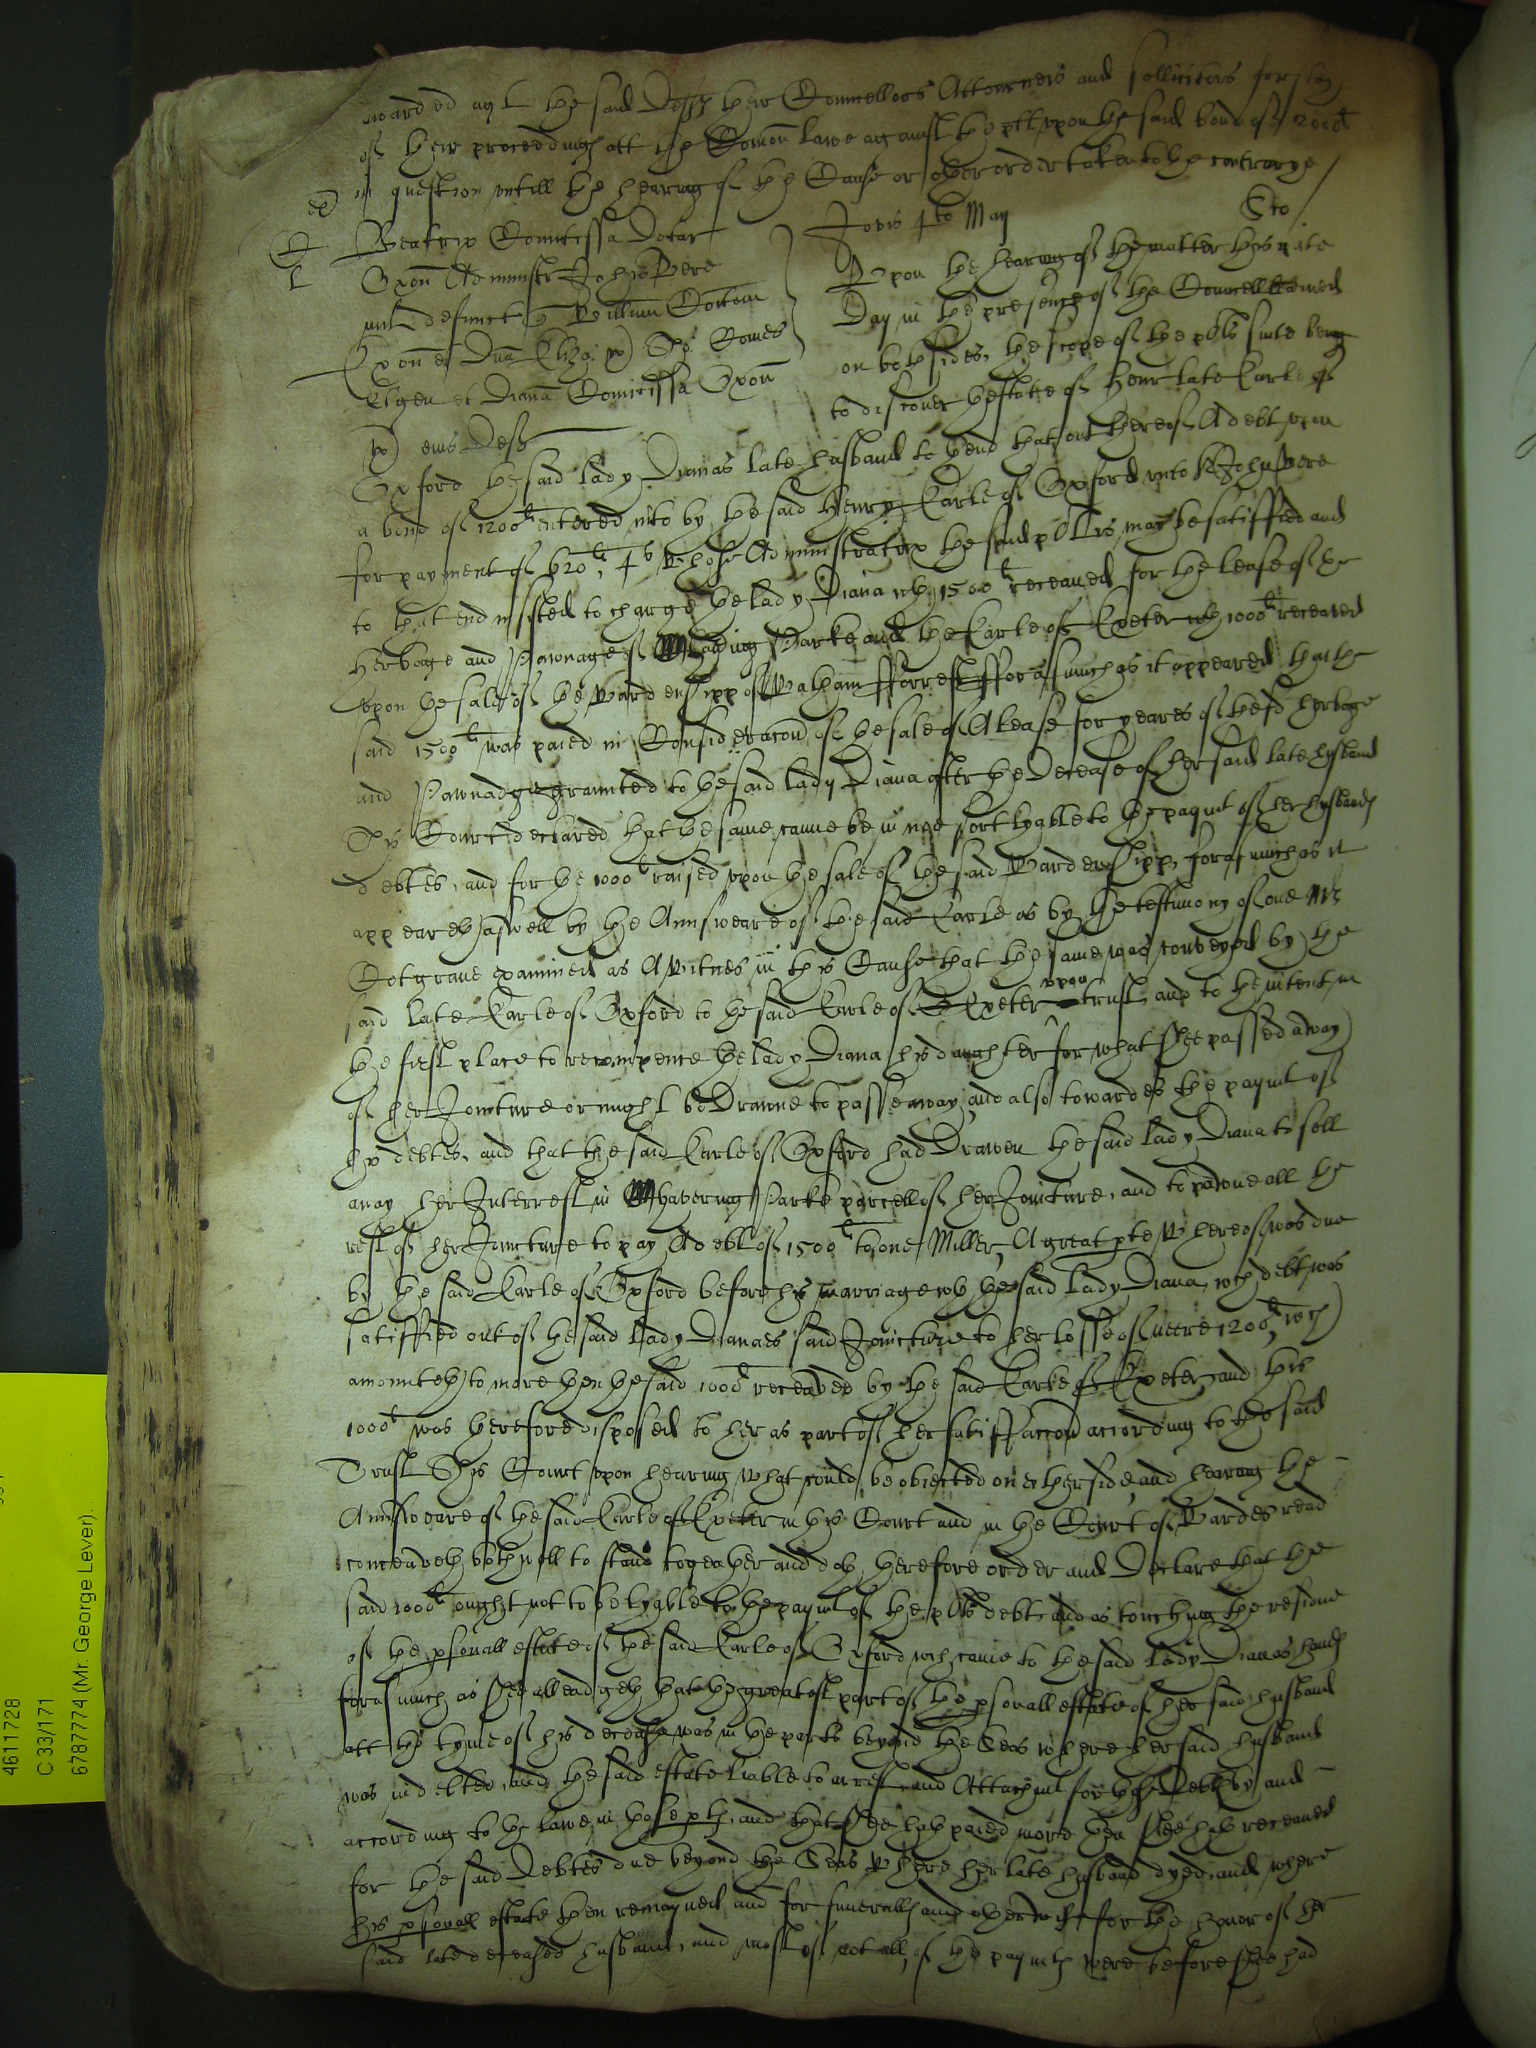 warded agt the said Defts their Councellors Attorneis and Sollicitors for stay
of their proceedings att the Comon lawe against the plt upon the said bond of 1200l
in question untill the hearing of the Cause or other order taken to the contrarye
Jovis 4to May Sto
Beatrix Comitissa Dotar
Oxon Administr Johis Vere
milt defunct q Willim Comitem
Exon et Dna Eliza: ux Tho: Comes
Elgen et Diana Comitissa Oxon
ux eius Defts
Upon the hearing of the matter this prite
Day in the presence of the Councell learned
on both sides, the scope of the plts suite being
to discover thestate of Henr late Earle of
Oxford the said lady Dianas late husband to thend that out thereof A debt upon
a bond of 1200l entered into by the said Henry Earle of Oxford unto Sr John Vere
for payment of 620l, 4s whose Administratrix the said pltt is, may be satisfied and
to that end insisted to charge the lady Diana wth 1500l receaved for the lease of the
herbage and Pawnage of Havering Parke and the Earle of Exeter wth 1000l receaved
upon the sale of the Wardenshipp of Waltham fforrest fforasmuch as it appeared that the
said 1500l was paied in Consideracon of the sale of A lease for yeares of the sd herbage
and Pawnadge graunted to the said lady Diana after the Decease of her said late husband
This Court declared that the same canne be in noe sort lyable to the paymt of her husbands
debtes, and for the 1000l raised upon the sale of the said Wardenshipp, forasmuch as it
appeareth aswell by the Aunsweare of the said Earle as by the testimony of one Mr
Cotgrave examined as A Witnes in this Cause that the same was conveyed by the
said late Earle of Oxford to the said Earle of Exeter upon trust, and to the intent in
the first place to recompence the lady Diana his daughter for what shee passed away
of her Joincture or might be Drawne to passe away, and also towardes the paymt of
his debtes, and that the said Earle of Oxford had Drawen the said lady Diana to sell
away her Interrest in Havering Parke parcell of her Joincture, and to pawne all the
rest of her Joincture to pay A debt of 1500l to one Miller, A great pte Whereof was due
by the said Earle of Oxford before his marriage wth the said lady Diana, wch debt was
satisfied out of the said lady Dianaes said Joincture to her losse of neere 1200l, wch
amounteth to more then the said 1000l receaved by the said Earle of Exeter, and this
1000l was therefore disposed to her as part of her satisfaccon according to the said
Trust This Court upon hearing what could be objected on either side, and hearing the
Aunsweare of the said Earle of Exeter in this Court and in the Court of Wardes read
conceaveth both well to stand togeather and doth therefore order and Declare that the
said 1000l ought not to be lyable to the paymt of the plts debt, and as touching the residue
of the psonall estate of the said Earle of Oxford wch came to the said lady Dianas hands
forasmuch as shee alleadgeth that the greatest part of the psonall estate of her said husband
att the tyme of his decease was in the parts beyond the Seas where her said husband
was indebted, and the said estate liable to arrest and Attachmt for those Debts by and
according to the lawe in those pts, and that shee hath paied more then shee hath receaved
for the said Debtes due beyond the Seas Where her late husband dyed, and where
his psonall estate then remayned and for funeralls and otherwise for the honor of her
said late deceased husband, and most if not all of the paymts were before shee had
4611728
C 33/171
6787774 (Mr. George Lever).